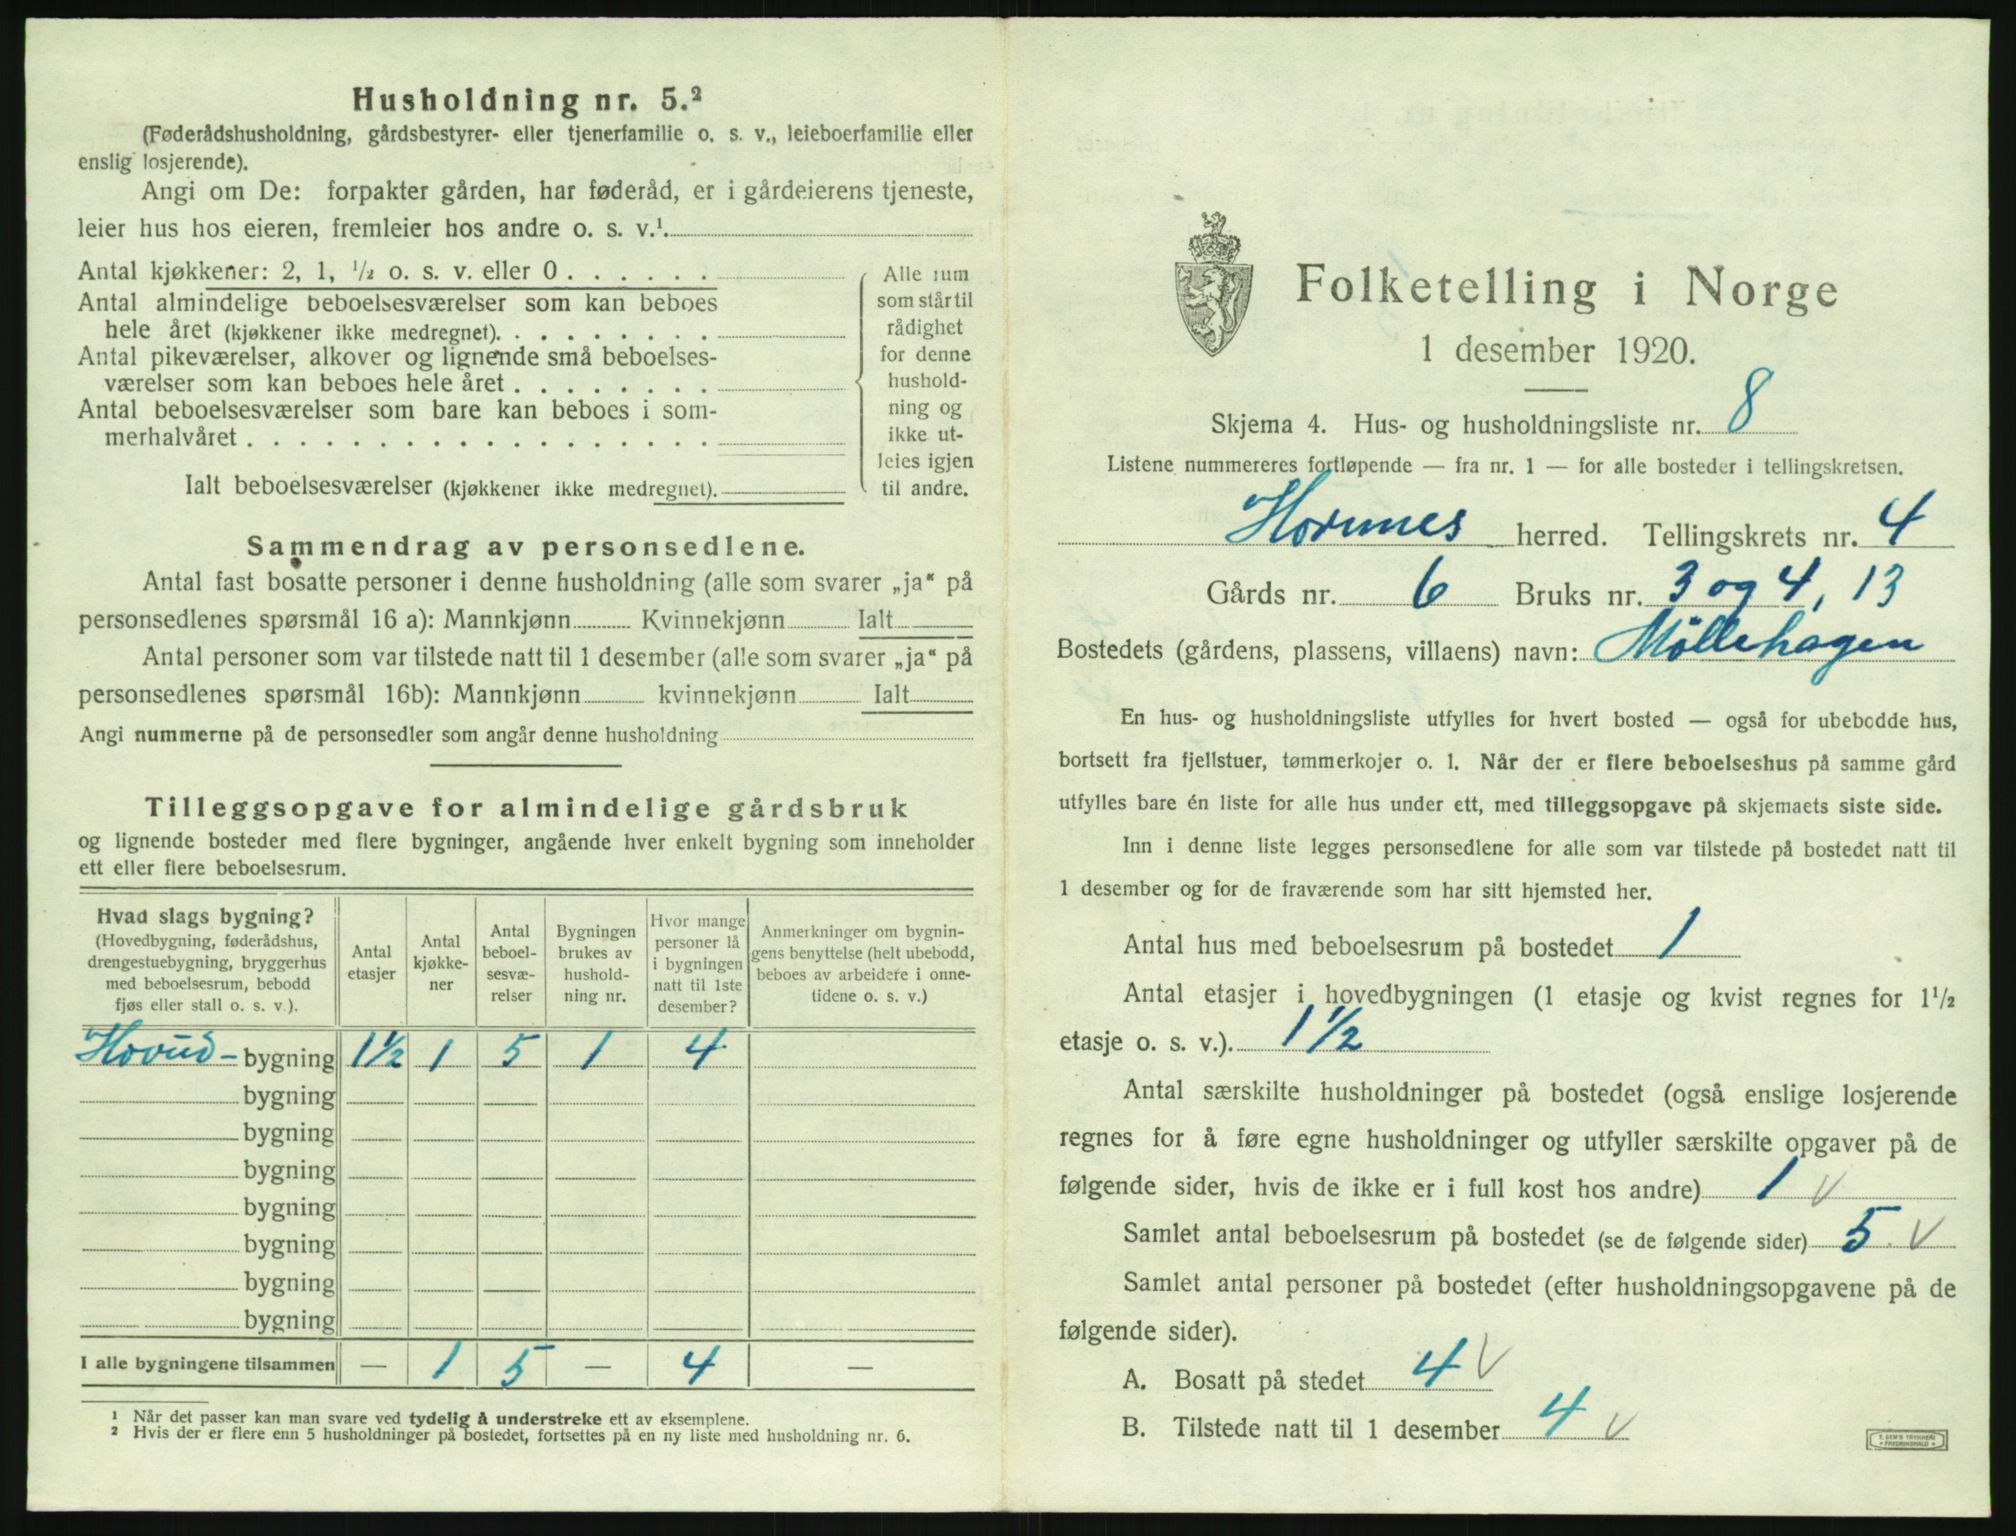 Husholdning nr. 5.²
(Føderådshusholdning, gårdsbestyrer- eller tjenerfamilie o. s. v., leieboerfamilie eller
enslig losjerende).
Angi om De: forpakter gården, har føderåd, er i gårdeierens tjeneste,
leier hus hos eieren, fremleier hos andre o. s. v.¹
Antal kjøkkener: 2, 1, ½ o. s. v. eller 0 . . . . . .
Antal almindelige beboelsesværelser som kan beboes
hele året (kjøkkener ikke medregnet). . . . . . . . .
Antal pikeværelser, alkover og lignende små beboelses-
værelser som kan beboes hele året . . . . . . . .
Antal beboelsesværelser som bare kan beboes i som-
merhalvåret . . . . . . . . . . . . . . . . . .
Ialt beboelsesværelser (kjøkkener ikke medregnet).
Alle rum
som står til
rådighet
for denne
hushold-
ning og
ikke ut-
leies igjen
til andre.
Sammendrag av personsedlene.
Antal fast bosatte personer i denne husholdning (alle som svarer „ja“ på
personsedlenes spørsmål 16 a): Mannkjønn Kvinnekjønn Ialt
Antal personer som var tilstede natt til 1 desember (alle som svarer „ja“ på
personsedlenes spørsmål 16b): Mannkjønn kvinnekjønn Ialt
Angi nummerne på de personsedler som angår denne husholdning
Tilleggsopgave for almindelige gårdsbruk
og lignende bosteder med flere bygninger, angående hver enkelt bygning som inneholder
ett eller flere beboelsesrum.
Hvad slags bygning?
(Hovedbygning, føderådshus,
drengestuebygning, bryggerhus
med beboelsesrum, bebodd
fjøs eller stall o. s. v.).
Antal
etasjer
Antal
kjøkke-
ner
Antal
beboel-
sesvæ-
relser
Bygningen
brukes av
hushold-
ning nr.
Hvor mange
personer lå
i bygningen
natt til 1ste
desember?
Anmerkninger om bygnin-
gens benyttelse (helt ubebodd,
beboes av arbeidere i onne-
tidene o. s. v.)
Hovud-bygning 1½ 1 5 1 4
bygning
bygning
bygning
bygning
bygning
bygning
bygning
I alle bygningene tilsammen — 1 5 — 4 —
¹ Når det passer kan man svare ved tydelig å understreke ett av eksemplene.
² Hvis der er flere enn 5 husholdninger på bostedet, fortsettes på en ny liste med husholdning nr. 6.
Folketelling i Norge
1 desember 1920.
Skjema 4. Hus- og husholdningsliste nr. 8
Listene nummereres fortløpende — fra nr. 1 — for alle bosteder i tellingskretsen.
Hornnes herred. Tellingskrets nr. 4
Gårds nr. 6 Bruks nr. 3 og 4, 13
Bostedets (gårdens, plassens, villaens) navn: Möllehagen
En hus- og husholdningsliste utfylles for hvert bosted — også for ubebodde hus,
bortsett fra fjellstuer, tømmerkojer o. l. Når der er flere beboelseshus på samme gård
utfylles bare én liste for alle hus under ett, med tilleggsopgave på skjemaets siste side.
Inn i denne liste legges personsedlene for alle som var tilstede på bostedet natt til
1 desember og for de fraværende som har sitt hjemsted her.
Antal hus med beboelsesrum på bostedet 1
Antal etasjer i hovedbygningen (1 etasje og kvist regnes for 1½
etasje o. s. v.). 1½
Antal særskilte husholdninger på bostedet (også enslige losjerende
regnes for å føre egne husholdninger og utfyller særskilte opgaver på de
følgende sider, hvis de ikke er i full kost hos andre) 1 v
Samlet antal beboelsesrum på bostedet (se de følgende sider) 5 v
Samlet antal personer på bostedet (efter husholdningsopgavene på de
følgende sider).
A. Bosatt på stedet 4 v
B. Tilstede natt til 1 desember 4 v